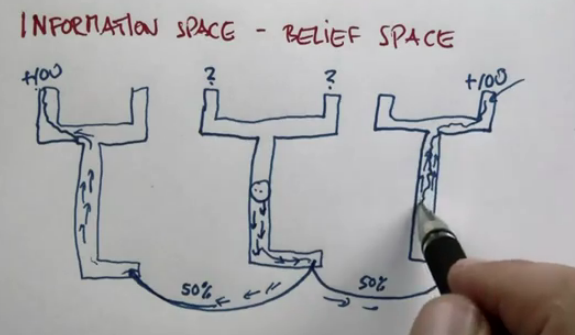 INFORMATION SPACE - BELIEF SPACE
+100
?
?
+100
50%
50%